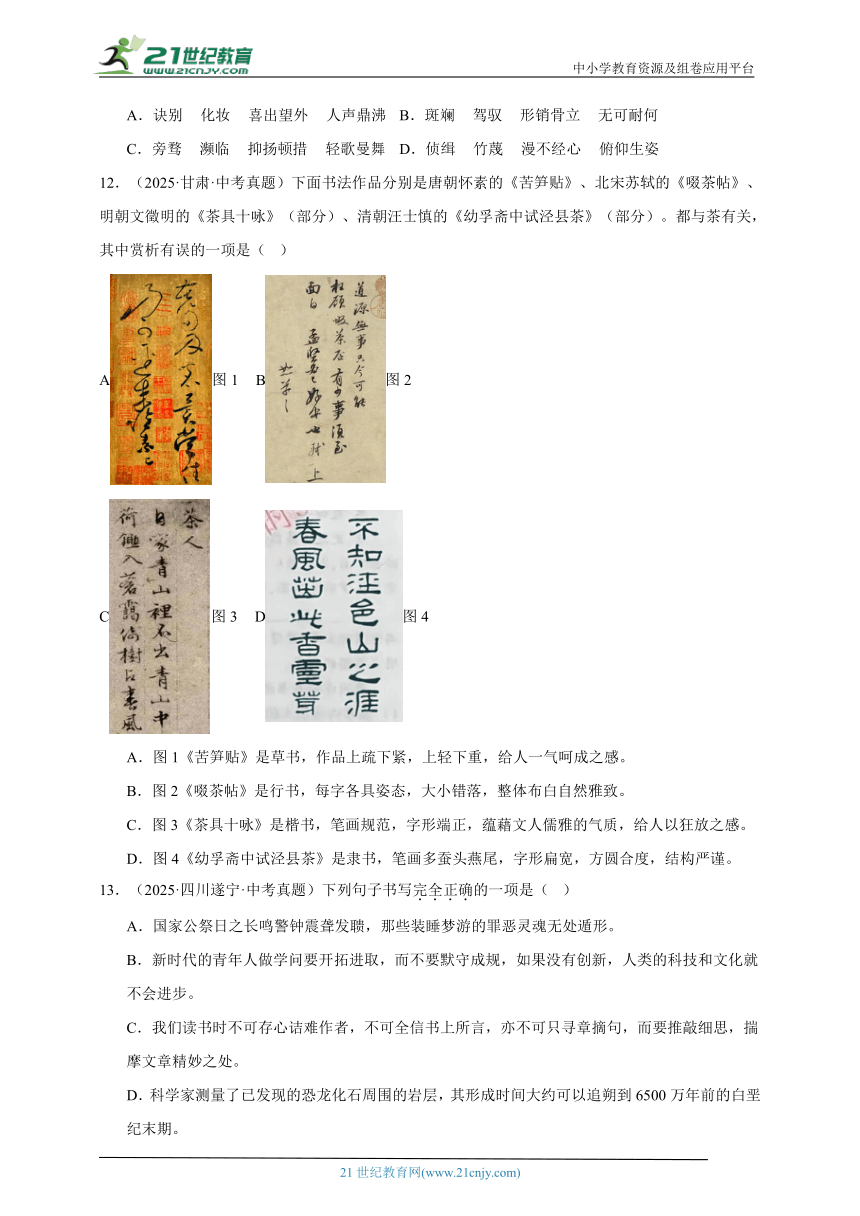 21世纪教育
WWW.21CNJY.COM
中小学教育资源及组卷应用平台
A．诀别 化妆 喜出望外 人声鼎沸 B．斑斓 驾驭 形销骨立 无可耐何
C．旁骛 濒临 抑扬顿措 轻歌曼舞 D．侦缉 竹蔑 漫不经心 俯仰生姿
12．（2025·甘肃·中考真题）下面书法作品分别是唐朝怀素的《苦笋贴》、北宋苏轼的《啜茶帖》、
明朝文徵明的《茶具十咏》（部分）、清朝汪士慎的《幼孚斋中试泾县茶》（部分）。都与茶有关，
其中赏析有误的一项是（ ）
A 图1 B 图2
道源無事只今可能
枉顧啜茶否有少事須至
面白孟堅必已好安也軾上
恕草草
C 图3 D 图4
茶人
自家青山裡不出青山中
荷鋤入蒼靄倚樹占春風
不知泾邑山之涯
春風茁此香靈芽
A．图1《苦笋贴》是草书，作品上疏下紧，上轻下重，给人一气呵成之感。
B．图2《啜茶帖》是行书，每字各具姿态，大小错落，整体布白自然雅致。
C．图3《茶具十咏》是楷书，笔画规范，字形端正，蕴藉文人儒雅的气质，给人以狂放之感。
D．图4《幼孚斋中试泾县茶》是隶书，笔画多蚕头燕尾，字形扁宽，方圆合度，结构严谨。
13．（2025·四川遂宁·中考真题）下列句子书写完全正确的一项是（ ）
A．国家公祭日之长鸣警钟震聋发聩，那些装睡梦游的罪恶灵魂无处遁形。
B．新时代的青年人做学问要开拓进取，而不要默守成规，如果没有创新，人类的科技和文化就
不会进步。
C．我们读书时不可存心诘难作者，不可全信书上所言，亦不可只寻章摘句，而要推敲细思，揣
摩文章精妙之处。
D．科学家测量了已发现的恐龙化石周围的岩层，其形成时间大约可以追朔到6500万年前的白垩
纪末期。
21世纪教育网(www.21cnjy.com)